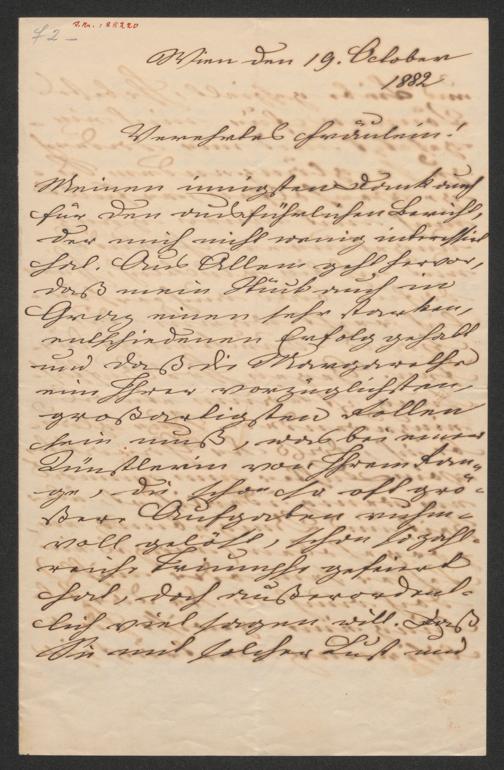 72 –
Wien den 19. October
1882
Verehrtes Fräulein!
Meinen innigsten Dank auch
für den ausführlichen Bericht,
der mich nicht wenig interessirt
hat. Aus Allem geht hervor,
daß mein Stück auch in
Graz einen sehr starken,
entschiedenen Erfolg gehabt
und daß die Margarethe
eine Ihrer vorzüglichsten
großartigsten Rollen
sein muß, was bei einer
Künstlerin von Ihrem Ran-
ge, die schon so oft grö-
ßere Aufgaben ruhm-
voll gelöst, schon so zahl-
reiche Triumphe gefeiert
hat, doch außerordent-
lich viel sagen will. Daß
Sie mit solcher Lust und